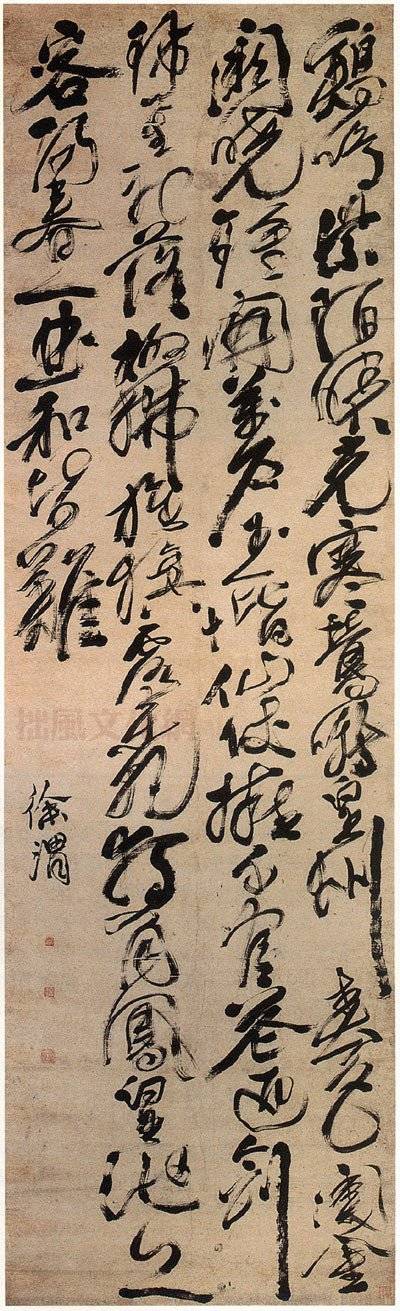 鷄鳴紫陌曙光寒鶯囀皇州春色闌金
闕曉鐘開萬户玉階仙仗擁千官花迎劍
珮星初落柳拂旌旗露未乾獨有鳳皇池上
客陽春一曲和皆難
徐渭
拙風文化網